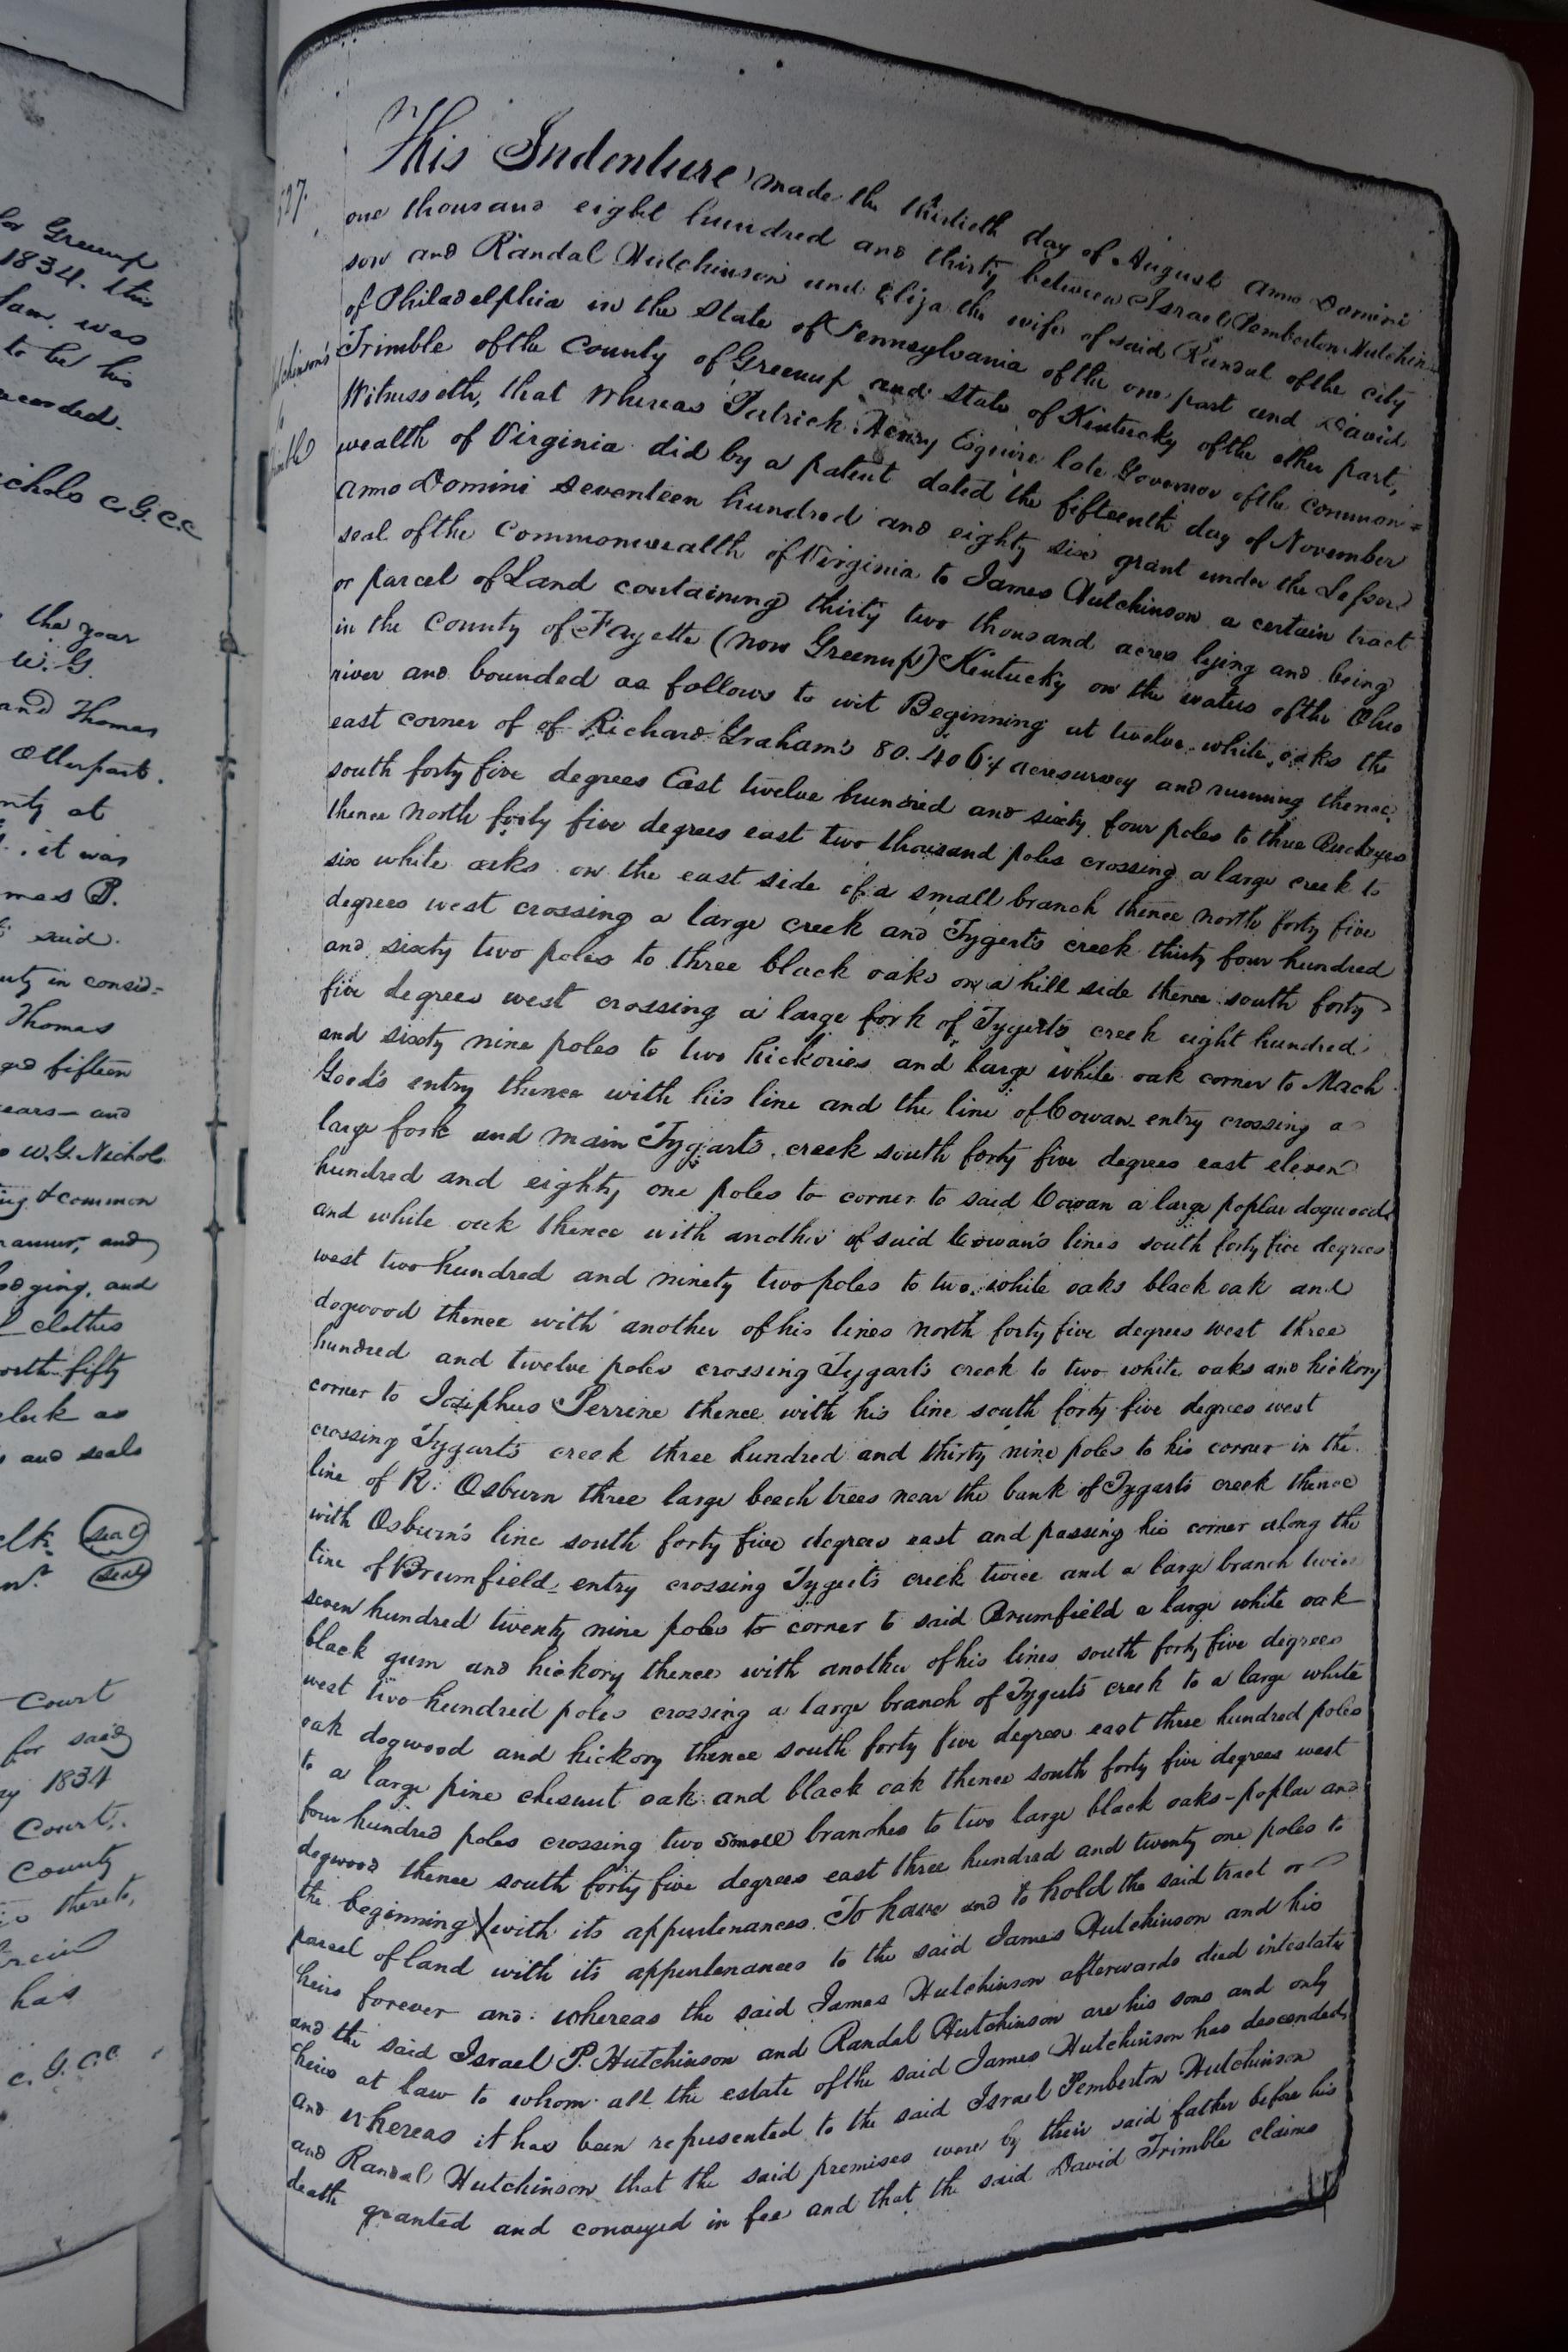 for Greenup
1834. this
was
to be his
recorded.
Nichols C.G.C.C.
the year
W. G.
and Thomas
Other part.
at
it was
B.
said.
in consid=
Thomas
fifteen
years - and
W. G. Nichols
& common
manner, and
lodging, and
clothes
worth fifty
clerk as
and seals
clk. seal
seal
Court
for said
1834
Court,
County
thereto,
has
C. G. C. C.
527.
Hutchinson's
to
Trimble
This Indenture made the thirtieth day of August Anno Domini
one thousand eight hundred and thirty between Israel Pemberton Hutchin
son and Randal Hutchinson and Eliza the wife of said Randal of the city
of Philadelphia in the State of Pennsylvania of the one part and David
Trimble of the County of Greenup and State of Kentucky of the other part,
Witnesseth, that Whereas Patrick Henry Esquire late Governor of the common=
wealth of Virginia did by a patent dated the fifteenth day of November
Anno Domini Seventeen hundred and eighty six grant under the Lesser
seal of the Commonwealth of Virginia to James Hutchinson a certain tract
or parcel of Land containing thirty two thousand acres lying and being
in the County of Fayette (now Greenup) Kentucky on the waters of the Ohio
river and bounded as follows to wit Beginning at twelve white oaks the
east corner of of Richard Graham's 80.406¼ acre survey and running thence
south forty five degrees East twelve hundred and sixty four poles to three Buckeyes
thence north forty five degrees east two thousand poles crossing a large creek to
six white oaks on the east side of a small branch thence north forty five
degrees west crossing a large creek and Tygerts creek thirty four hundred
and sixty two poles to three black oaks on a hill side thence south forty
five degrees west crossing a large fork of Tygarts creek eight hundred
and sixty nine poles to two hickories and large white oak corner to Mach
Good's entry thence with his line and the line of Cowan entry crossing a
large fork and main Tygarts creek south forty five degrees east eleven
hundred and eighty one poles to corner to said Cowan a large poplar dogwood
and white oak thence with another of said Cowan's lines south forty five degrees
west two hundred and ninety two poles to two white oaks black oak and
dogwood thence with another of his lines north forty five degrees west three
hundred and twelve poles crossing Tygarts creek to two white oaks and hickory
corner to Josephus Perrine thence with his line south forty five degrees west
crossing Tygarts creek three hundred and thirty nine poles to his corner in the
line of R. Osburn three large beech trees near the bank of Tygarts creek thence
with Osburn's line south forty five degrees east and passing his corner along the
line of Brumfield entry crossing Tygerts creek twice and a large branch twice
seven hundred twenty nine poles to corner to said Brumfield a large white oak
black gum and hickory thence with another of his lines south forty five degrees
west two hundred poles crossing a large branch of Tygarts creek to a large white
oak dogwood and hickory thence south forty five degrees east three hundred poles
to a large pine chesnut oak and black oak thence south forty five degrees west
four hundred poles crossing two small branches to two large black oaks - poplar and
dogwood thence south forty five degrees east three hundred and twenty one poles to
the beginning with its appurtenances. To have and to hold the said tract or
parcel of land with its appurtenances to the said James Hutchinson and his
heirs forever and whereas the said James Hutchinson afterwards died intestate
and the said Israel P. Hutchinson and Randal Hutchinson are his sons and only
heirs at law to whom all the estate of the said James Hutchinson has descended,
and whereas it has been represented to the said Israel Pemberton Hutchinson
and Randal Hutchinson that the said premises were by their said father before his
death granted and conveyed in fee and that the said David Trimble claims